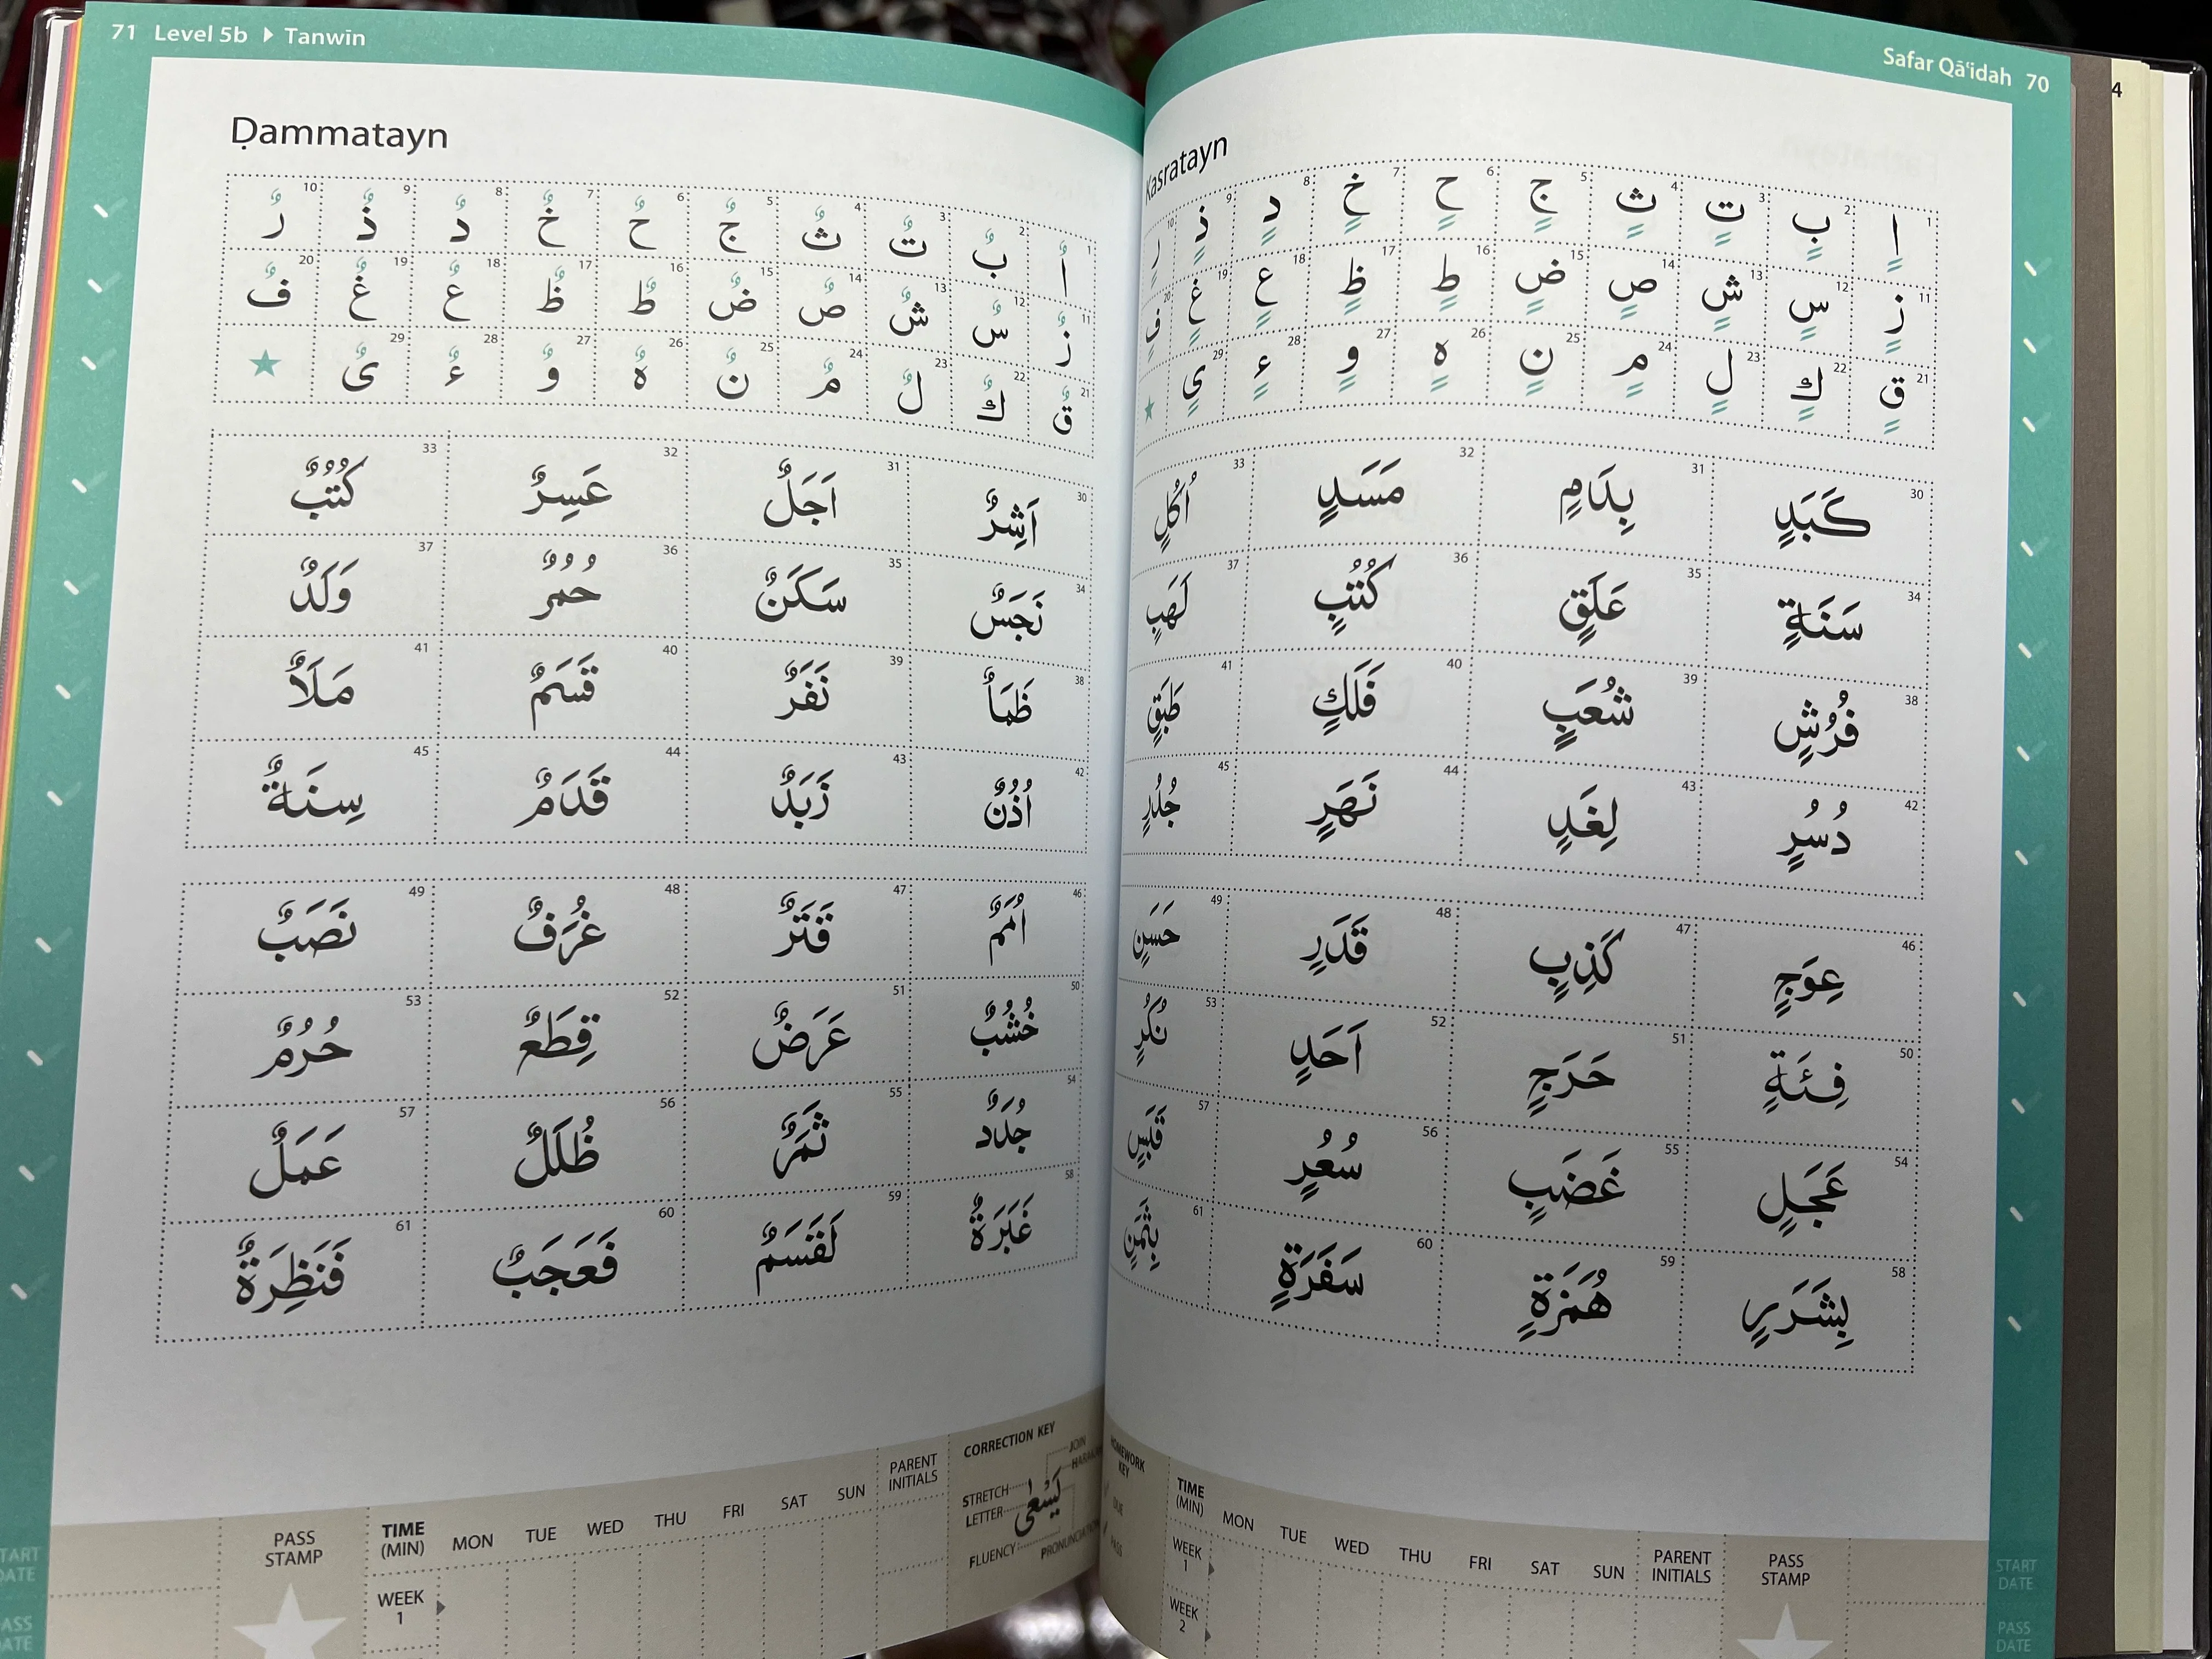 Safar Qā‘idah 70
Kasratayn
1 اٍ 2 بٍ 3 تٍ 4 ثٍ 5 جٍ 6 حٍ 7 خٍ 8 دٍ 9 ذٍ 10 رٍ
11 زٍ 12 سٍ 13 شٍ 14 صٍ 15 ضٍ 16 طٍ 17 ظٍ 18 عٍ 19 غٍ 20 فٍ
21 قٍ 22 كٍ 23 لٍ 24 مٍ 25 نٍ 26 هٍ 27 وٍ 28 ءٍ 29 يٍ
30 كَبَدٍ 31 بِدَامٍ 32 مَسَدٍ 33 اُكُلٍ
34 سَنَةٍ 35 عَلَقٍ 36 كُتُبٍ 37 لَهَبٍ
38 فُرُشٍ 39 شُعَبٍ 40 فَلَكٍ 41 طَبَقٍ
42 دُسُرٍ 43 لِغَدٍ 44 نَهَرٍ 45 جُدُرٍ
46 عِوَجٍ 47 كَذِبٍ 48 قَدَرٍ 49 حَسَنٍ
50 فِئَةٍ 51 حَرَجٍ 52 اَحَدٍ 53 نُكُرٍ
54 عَجَلٍ 55 غَضَبٍ 56 سُعُرٍ 57 قَبَسٍ
58 بِشَرَرٍ 59 هُمَزَةٍ 60 سَفَرَةٍ 61 بِثَمَنٍ
HOMEWORK KEY
DUE
PASS
TIME (MIN) MON TUE WED THU FRI SAT SUN PARENT INITIALS PASS STAMP START DATE
WEEK 1
WEEK 2 PASS DATE
4
71 Level 5b Tanwīn
Ḍammatayn
1 اٌ 2 بٌ 3 تٌ 4 ثٌ 5 جٌ 6 حٌ 7 خٌ 8 دٌ 9 ذٌ 10 رٌ
11 زٌ 12 سٌ 13 شٌ 14 صٌ 15 ضٌ 16 طٌ 17 ظٌ 18 عٌ 19 غٌ 20 فٌ
21 قٌ 22 كٌ 23 لٌ 24 مٌ 25 نٌ 26 هٌ 27 وٌ 28 ءٌ 29 ىٌ
30 اَشِرٌ 31 اَجَلٌ 32 عَسِرٌ 33 كُتُبٌ
34 نَجَسٌ 35 سَكَنٌ 36 حُمُرٌ 37 وَلَدٌ
38 ظَمَأٌ 39 نَفَرٌ 40 قَسَمٌ 41 مَلَأٌ
42 اُذُنٌ 43 زَبَدٌ 44 قَدَمٌ 45 سِنَةٌ
46 اُمَمٌ 47 قَتَرٌ 48 غُرَفٌ 49 نَصَبٌ
50 خُشُبٌ 51 عَرَضٌ 52 قِطَعٌ 53 حُرُمٌ
54 جُدَدٌ 55 ثَمَرٌ 56 ظُلَلٌ 57 عَمَلٌ
58 غَبَرَةٌ 59 لَقَسَمٌ 60 فَعَجَبٌ 61 فَنَظِرَةٌ
START DATE PASS STAMP TIME (MIN) MON TUE WED THU FRI SAT SUN PARENT INITIALS
PASS DATE WEEK 1
CORRECTION KEY
JOIN
STRETCH
LETTER
يَسْعٰى
FLUENCY
PRONUNCIATION